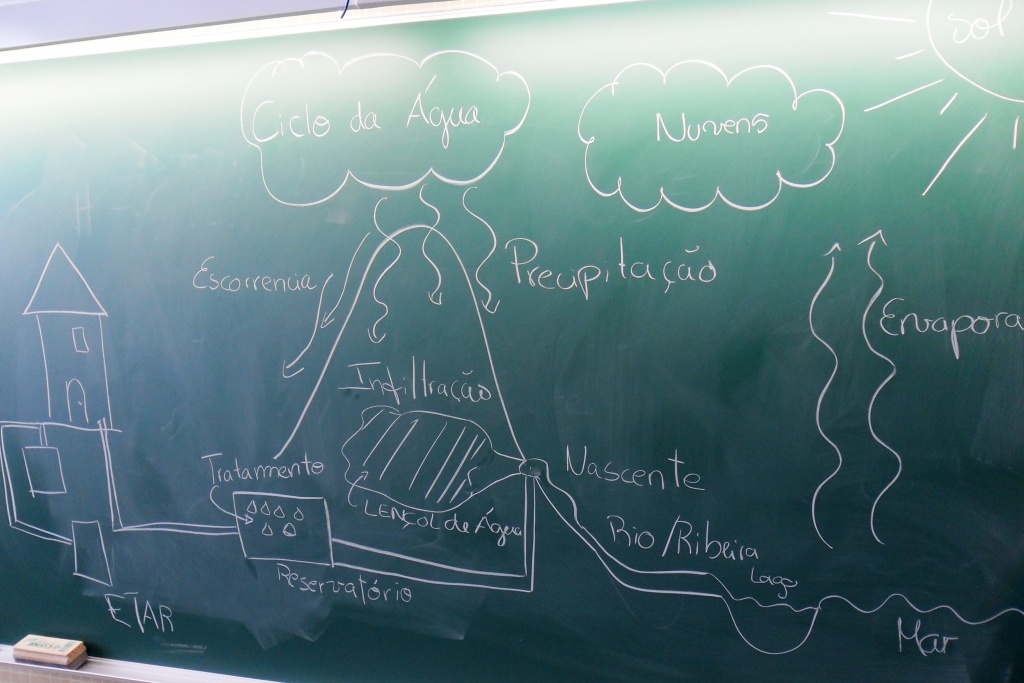 sol
Ciclo da Água
Nuvens
Escorrencia
Precipitação
Evapora
Infiltração
Tratamento
Nascente
LENÇOL de Água
Rio/Ribeira
Lago
Reservatório
ETAR
Mar